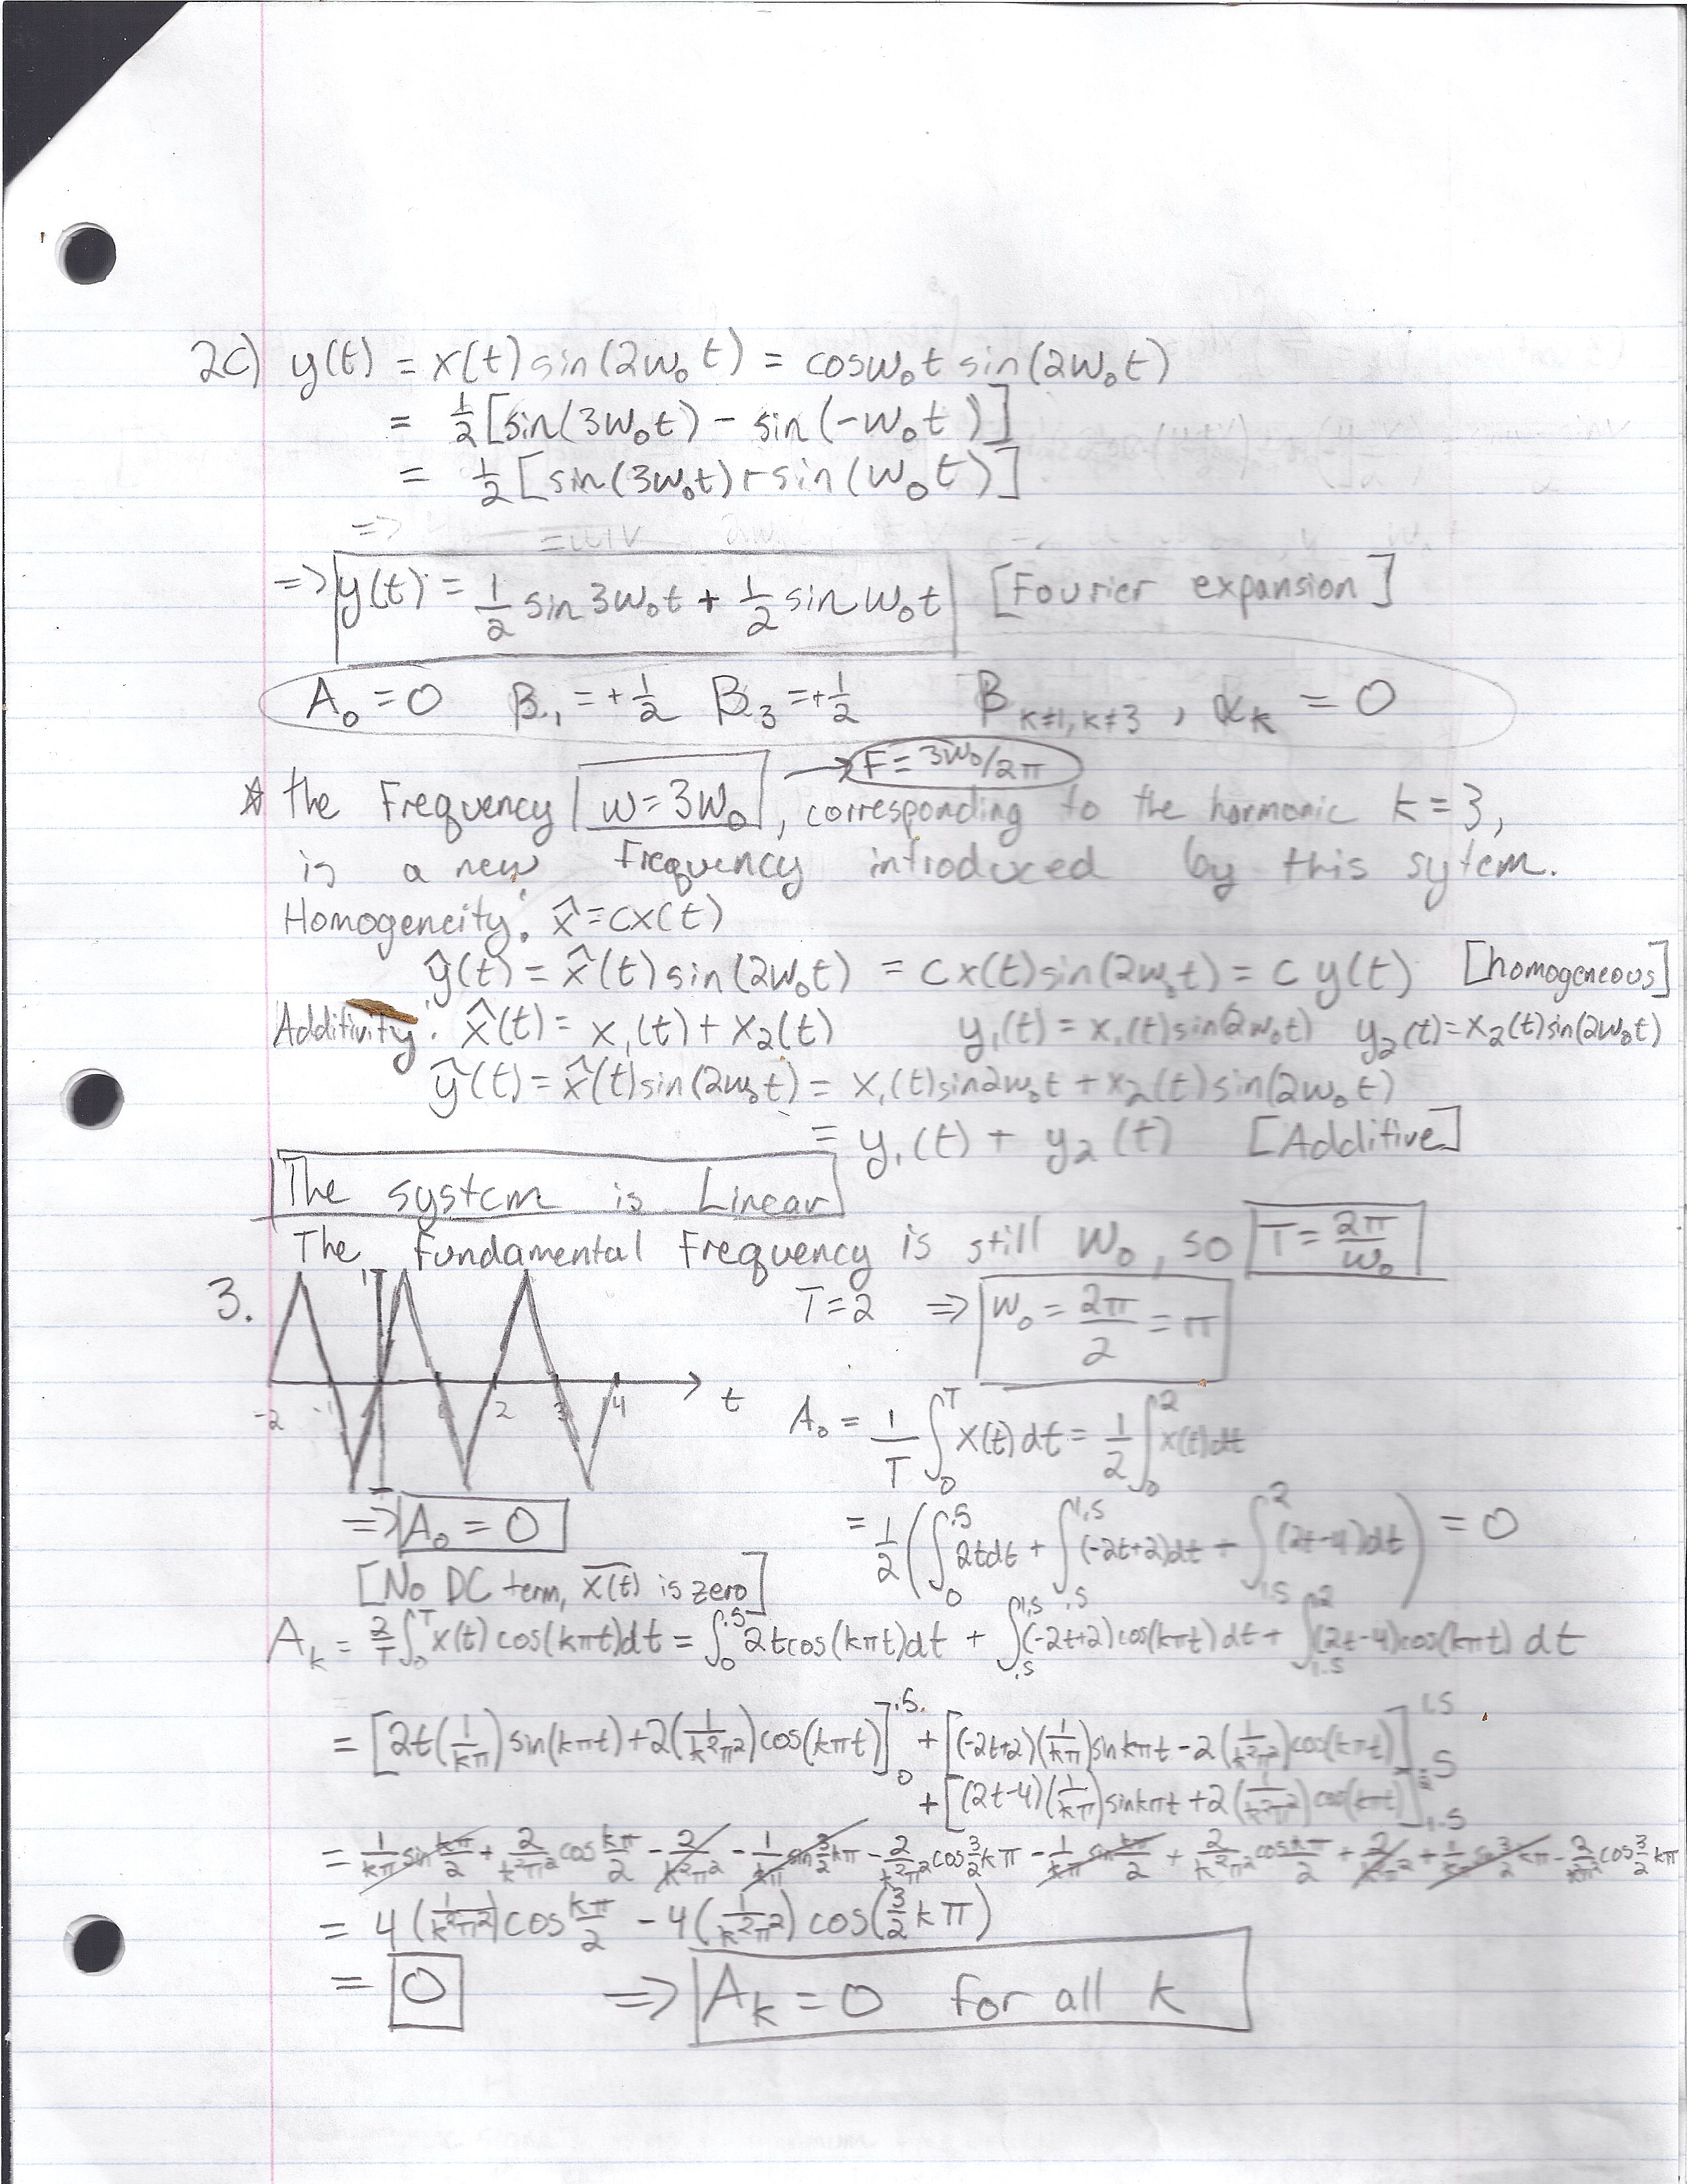 2c) y(t) = x(t) sin(2w₀t) = cosw₀t sin(2w₀t)
= ½[sin(3w₀t) - sin(-w₀t)]
= ½[sin(3w₀t) + sin(w₀t)]
=>
=> y(t) = 1/2 sin3w₀t + 1/2 sinw₀t [Fourier expansion]
A₀ = 0 B₁ = +1/2 B₃ = +1/2 B k≠1, k≠3 , αₖ = 0
F = 3w₀/2π
☆ the Frequency w = 3w₀, corresponding to the harmonic k = 3,
is a new frequency introduced by this sytem.
Homogeneity: x̂ = cx(t)
ŷ(t) = x̂(t) sin(2w₀t) = cx(t)sin(2w₀t) = c y(t) [homogeneous]
Additivity: x̂(t) = x₁(t) + x₂(t) y₁(t) = x₁(t)sin(2w₀t) y₂(t) = x₂(t)sin(2w₀t)
ŷ(t) = x̂(t)sin(2w₀t) = x₁(t)sin2w₀t + x₂(t)sin(2w₀t)
= y₁(t) + y₂(t) [Additive]
The system is Linear
The Fundamental Frequency is still w₀, so T = 2π/w₀
3. 1 T = 2 => w₀ = 2π/2 = π
-2 -1 1 2 3 4 t
A₀ = 1/T ∫₀ᵀ x(t)dt = 1/2 ∫₀² x(t)dt
=> A₀ = 0
= 1/2 (∫₀^.5 2tdt + ∫.5^1.5 (-2t+2)dt + ∫1.5^2 (2t-4)dt) = 0
[No DC term, x̄(t) is zero]
Aₖ = 2/T ∫₀ᵀ x(t) cos(kπt)dt = ∫₀^.5 2tcos(kπt)dt + ∫.5^1.5 (-2t+2)cos(kπt)dt + ∫1.5^2 (2t-4)cos(kπt) dt
= [2t(1/kπ)sin(kπt) + 2(1/k²π²)cos(kπt)]₀^.5 + [(-2t+2)(1/kπ)sinkπt - 2(1/k²π²)cos(kπt)].5^1.5
+ [(2t-4)(1/kπ)sinkπt + 2(1/k²π²)cos(kπt)]1.5^2
= 1/kπ sin kπ/2 + 2/k²π² cos kπ/2 - 2/k²π² - 1/kπ sin 3/2 kπ - 2/k²π² cos 3/2 kπ - 1/kπ sin kπ/2 + 2/k²π² cos kπ/2 + 2/k²π² + 1/kπ sin 3/2 kπ - 2/k²π² cos 3/2 kπ
= 4(1/k²π²)cos kπ/2 - 4(1/k²π²)cos(3/2 kπ)
= 0 => Aₖ = 0 for all k